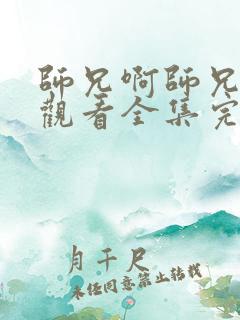 師兄啊師兄
觀看全集完
月千尺
未經同意禁止轉載